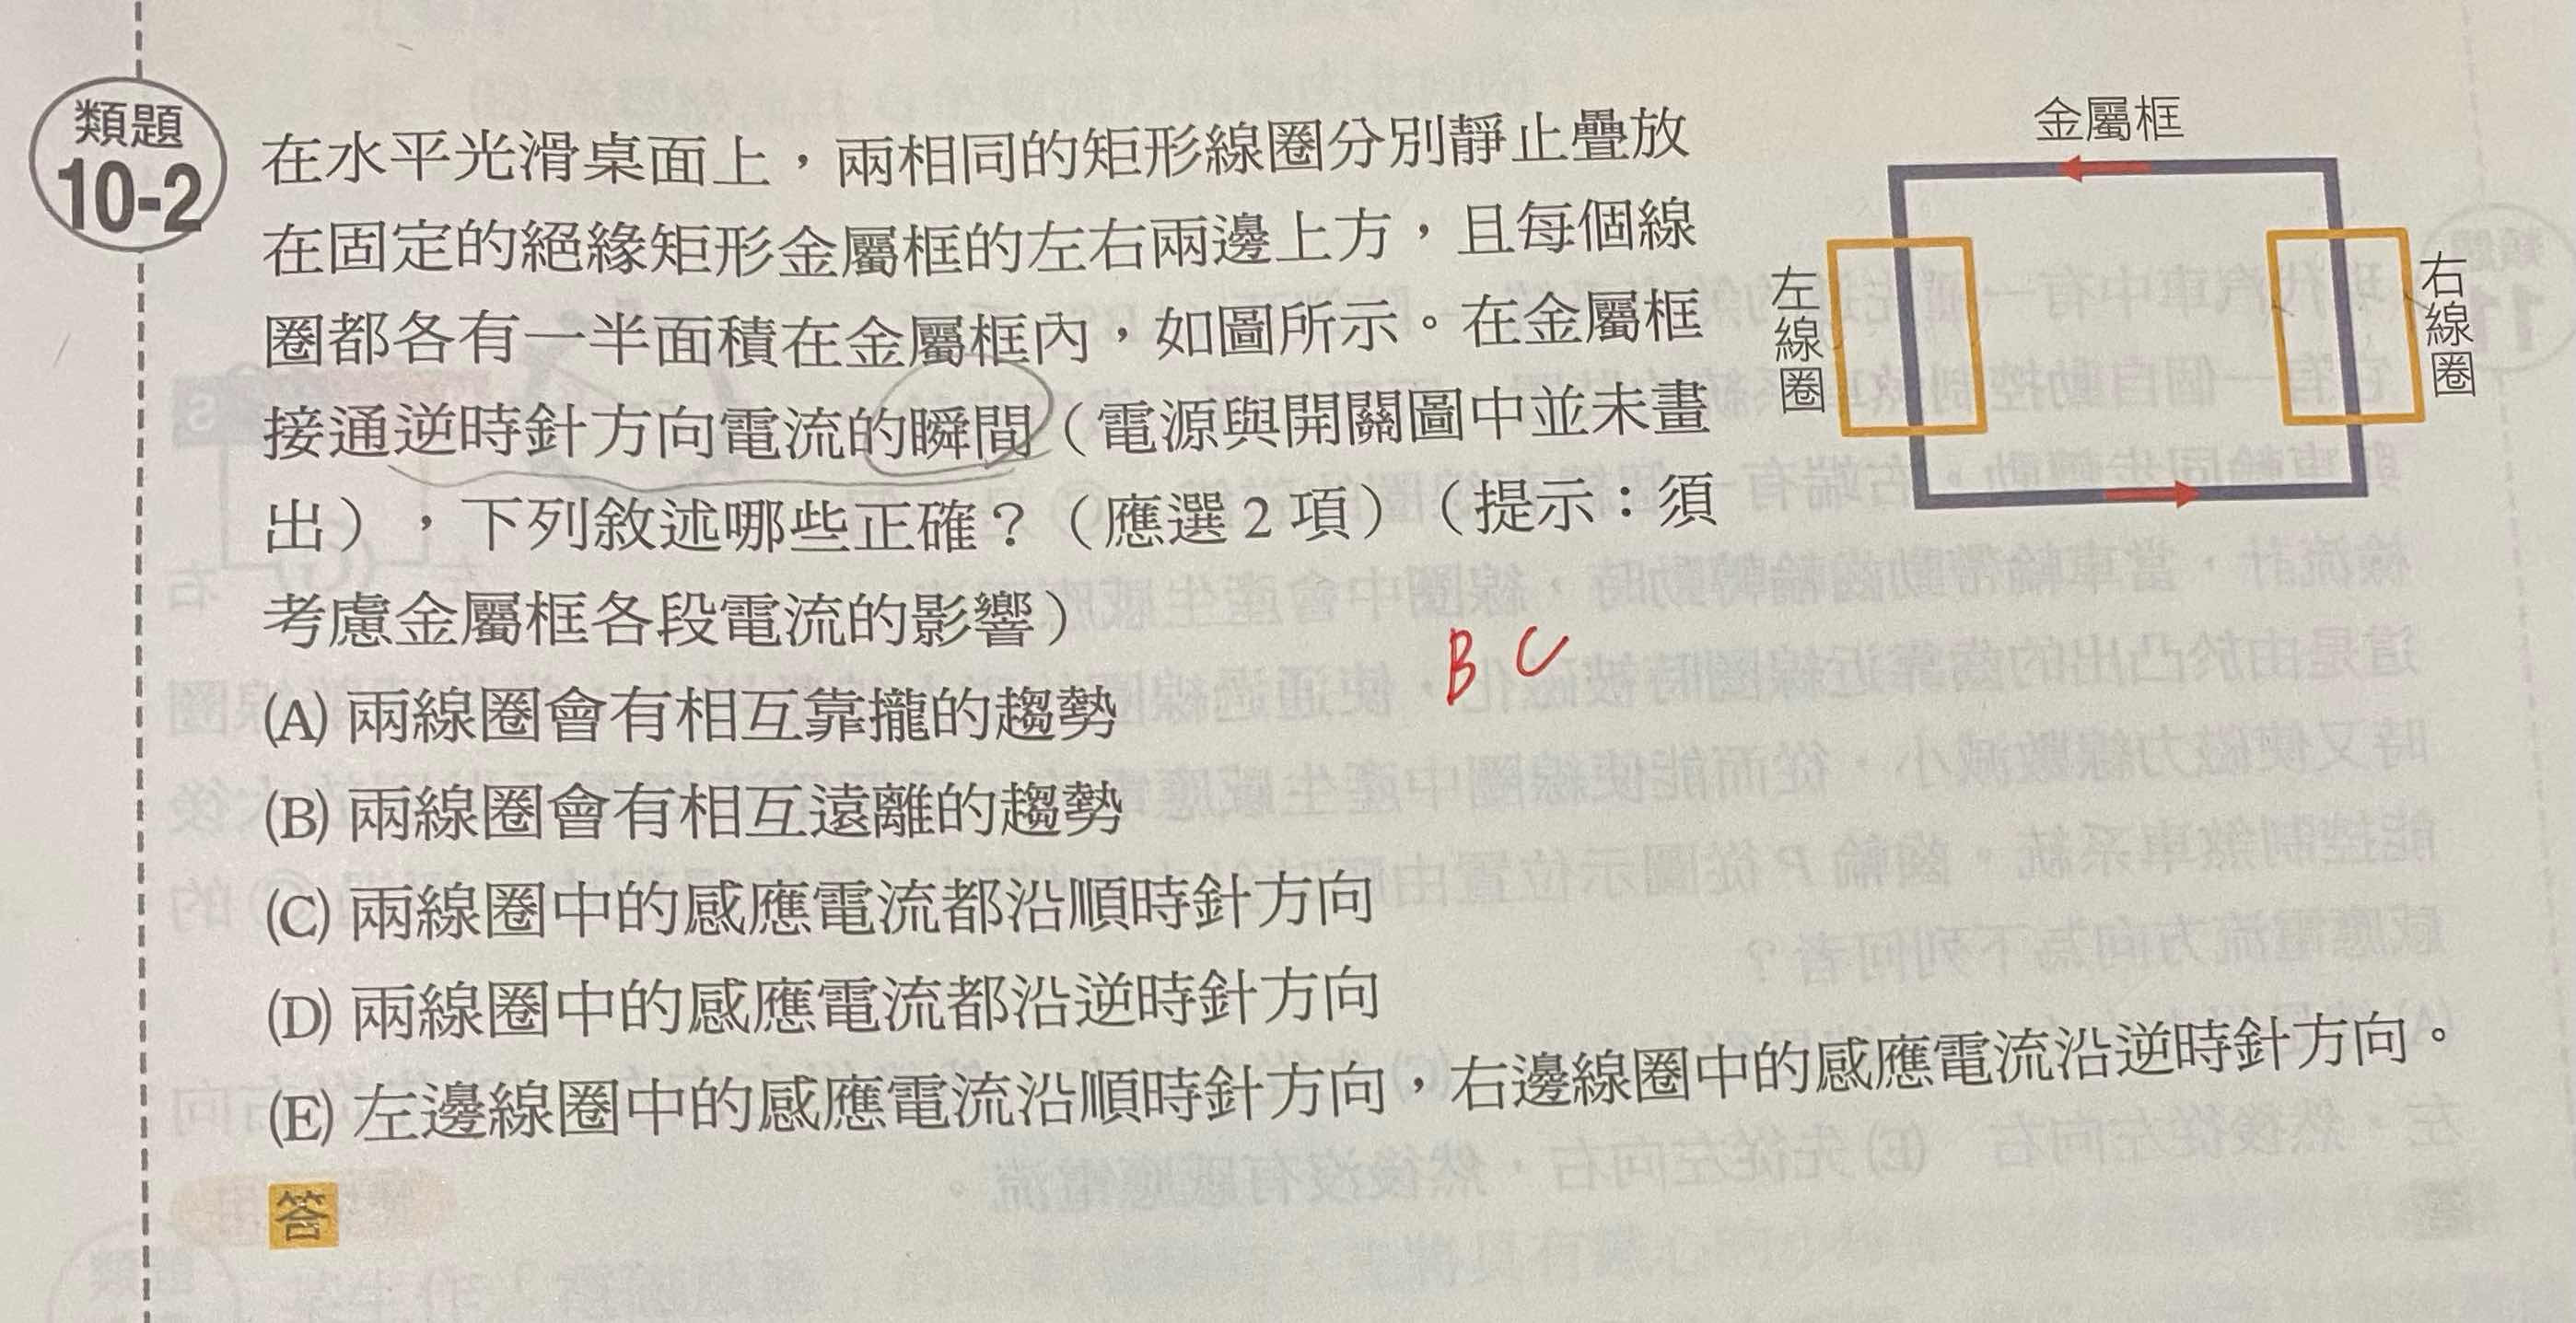 類題
10-2
在水平光滑桌面上，兩相同的矩形線圈分別靜止疊放
在固定的絕緣矩形金屬框的左右兩邊上方，且每個線
圈都各有一半面積在金屬框內，如圖所示。在金屬框
接通逆時針方向電流的瞬間（電源與開關圖中並未畫
出），下列敘述哪些正確？（應選2項）（提示：須
考慮金屬框各段電流的影響）
金屬框
左線圈
右線圈
B C
(A) 兩線圈會有相互靠攏的趨勢
(B) 兩線圈會有相互遠離的趨勢
(C) 兩線圈中的感應電流都沿順時針方向
(D) 兩線圈中的感應電流都沿逆時針方向
(E) 左邊線圈中的感應電流沿順時針方向，右邊線圈中的感應電流沿逆時針方向。
答